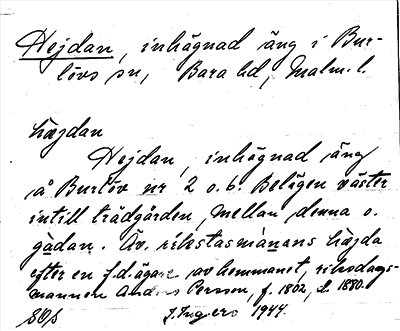 Hejdan, inhägnad äng i Bur-
lövs sn, Bara hd, Malm. l.
Hejdan, inhägnad äng
å Burlöv nr 2 o. 6. Belägen väster
intill trädgården, mellan denna o.
gadan. Äv. riksdasmånans
efter en f.d. ägare av hemmanet, riksdags-
mannen Anders Persson, f. 1802, d. 1880.
J. Ingers 1944.